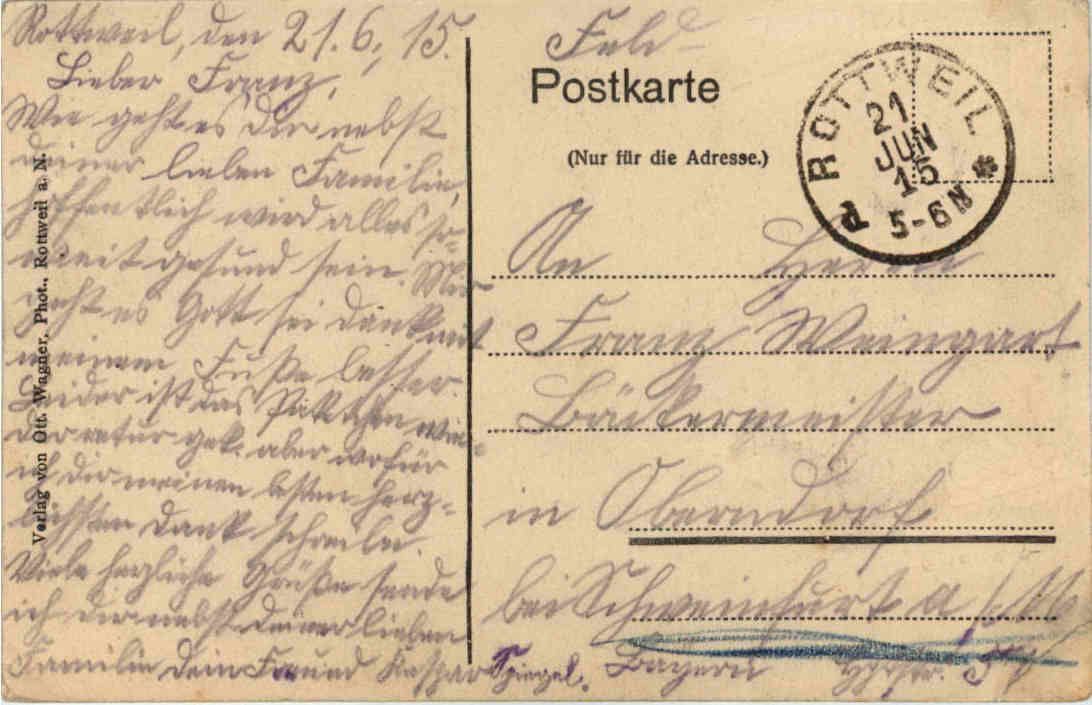 Rottweil, den 21.6.15.
Lieber Franz,
Wie geht es Dir nebst
deiner lieben Familie,
hoffentlich wird alles so-
weit gesund sein. Mir
geht es Gott sei dank mit
meinem Fuße besser.
Leider ist das Päckchen wie-
der retur gek. aber wofür
ich dir meinen besten herz-
lichsten Dank schreibe.
Viele herzliche Grüße sende
ich dir nebst deiner lieben
Familie dein Freund Kaspar Spiegel.
Verlag von Ott. Wagner, Phot., Rottweil a. N.
Feld-
Postkarte
(Nur für die Adresse.)
ROTTWEIL
21
JUN
15
5-6 N
An Herrn
Franz Weingart
Bäckermeister
in Oberndorf
bei Schweinfurt a/M
Bayern